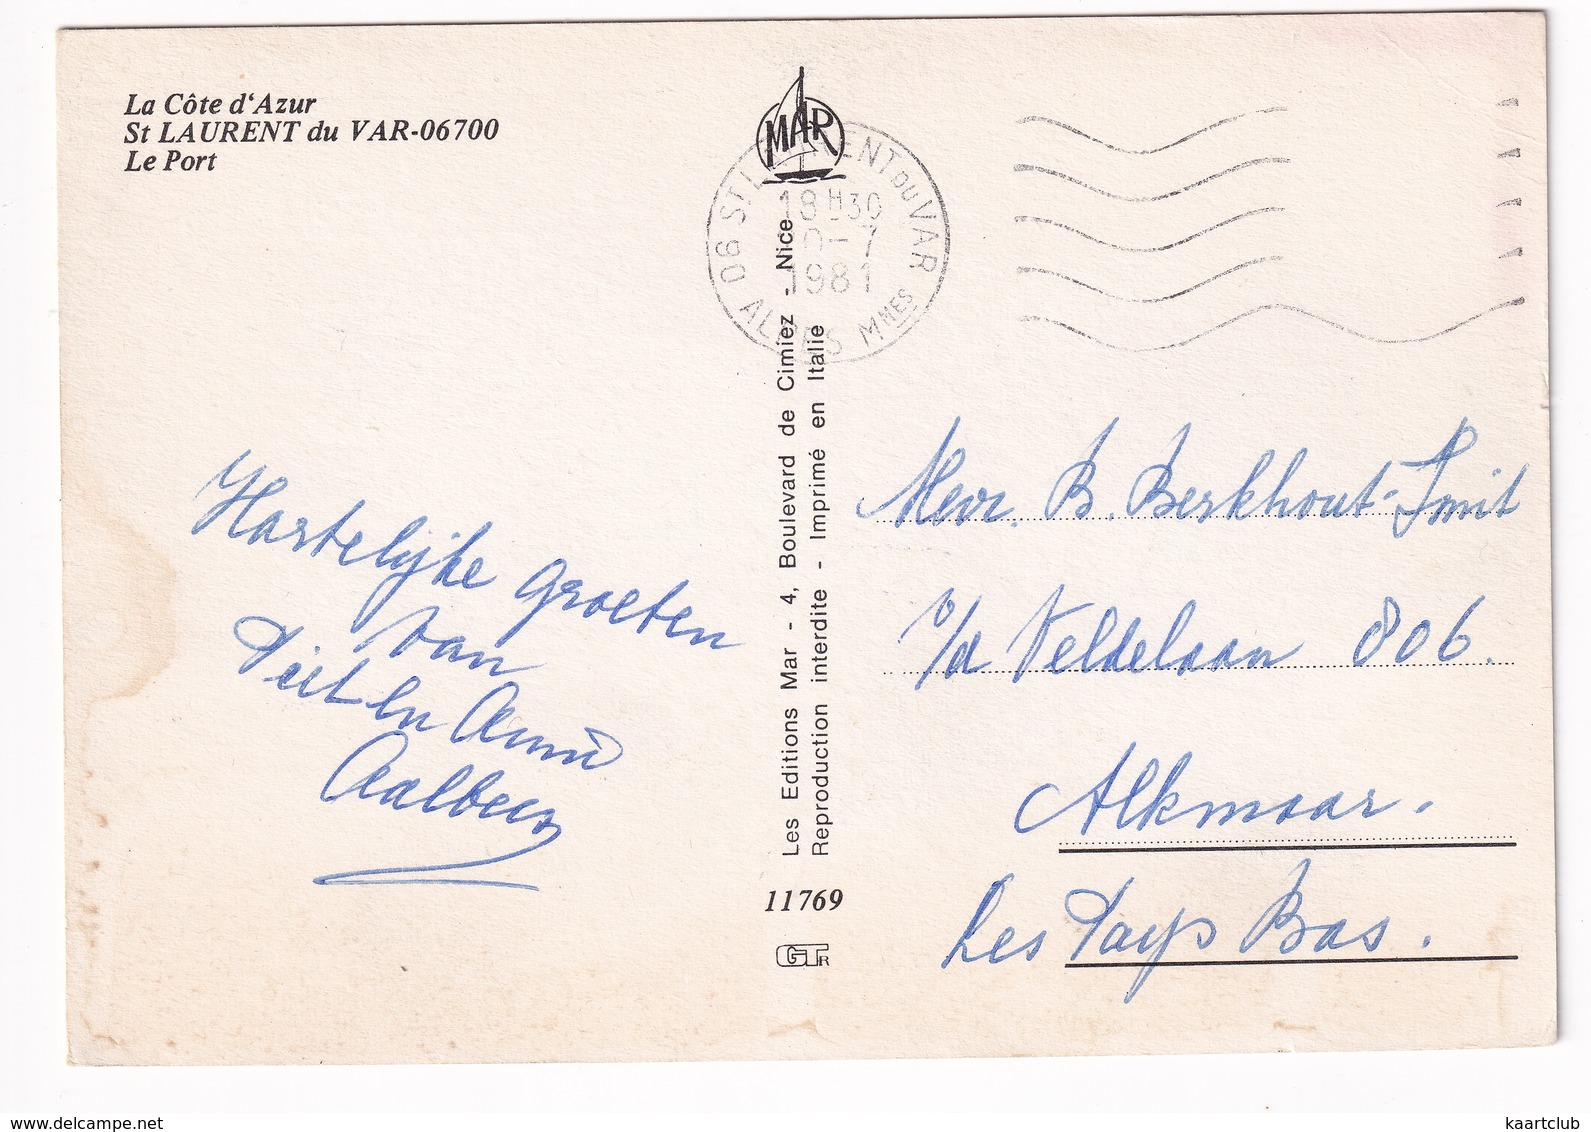 La Côte d'Azur
St LAURENT du VAR-06700
Le Port
MAR
06 ST LAURENT DU VAR
18H30
10-7
1981
ALPES MMES
Hartelijke groeten
van
Piet en Annie
Aalbers
Les Editions Mar - 4, Boulevard de Cimiez - Nice
Reproduction interdite - Imprimé en Italie
11769
GTR
Mevr. B. Berkhout-Smit
v/d Veldelaan 806.
Alkmaar.
Les Pays Bas.
www.delcampe.net
kaartclub